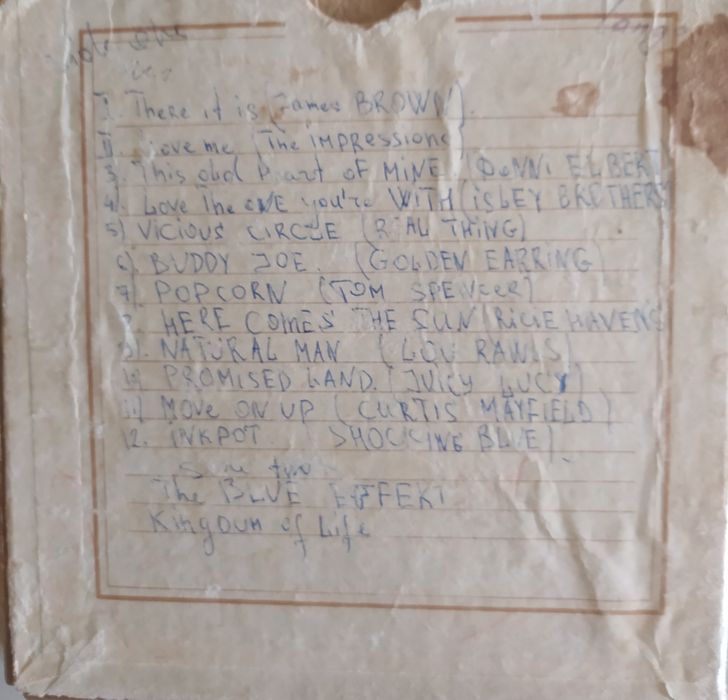 I. There it is (James BROWN).
II. Love me (The IMPRESSIONS)
3. This old heart OF MINE (DONNI ELBERT
4. Love The ONE you're WITH (ISLEY BROTHERS
5) VICIOUS CIRCLE (REAL THING)
6). BUDDY JOE. (GOLDEN EARRING)
7). POPCORN (TOM SPENCER)
8. HERE COMES THE SUN (RICIE HAVENS
9). NATURAL MAN (LOU RAWLS)
10) PROMISED LAND. (JUICY LUCY)
11) MOVE ON UP (CURTIS MAYFIELD)
12. INKPOT. SHOCKING BLUE).
The BLUE EFFEKT
Kingdum of Life